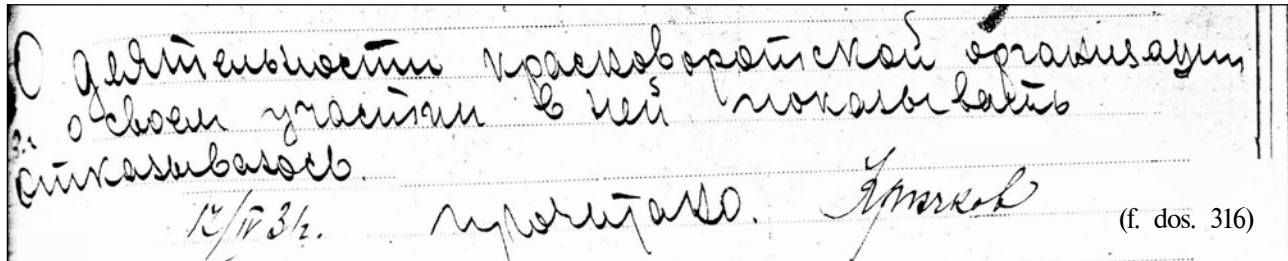 О деятельности красковоротской организации
о своем участии в ней показывать
отказываюсь.
12/IV 31г. Прочитано. Крючков
(f. dos. 316)